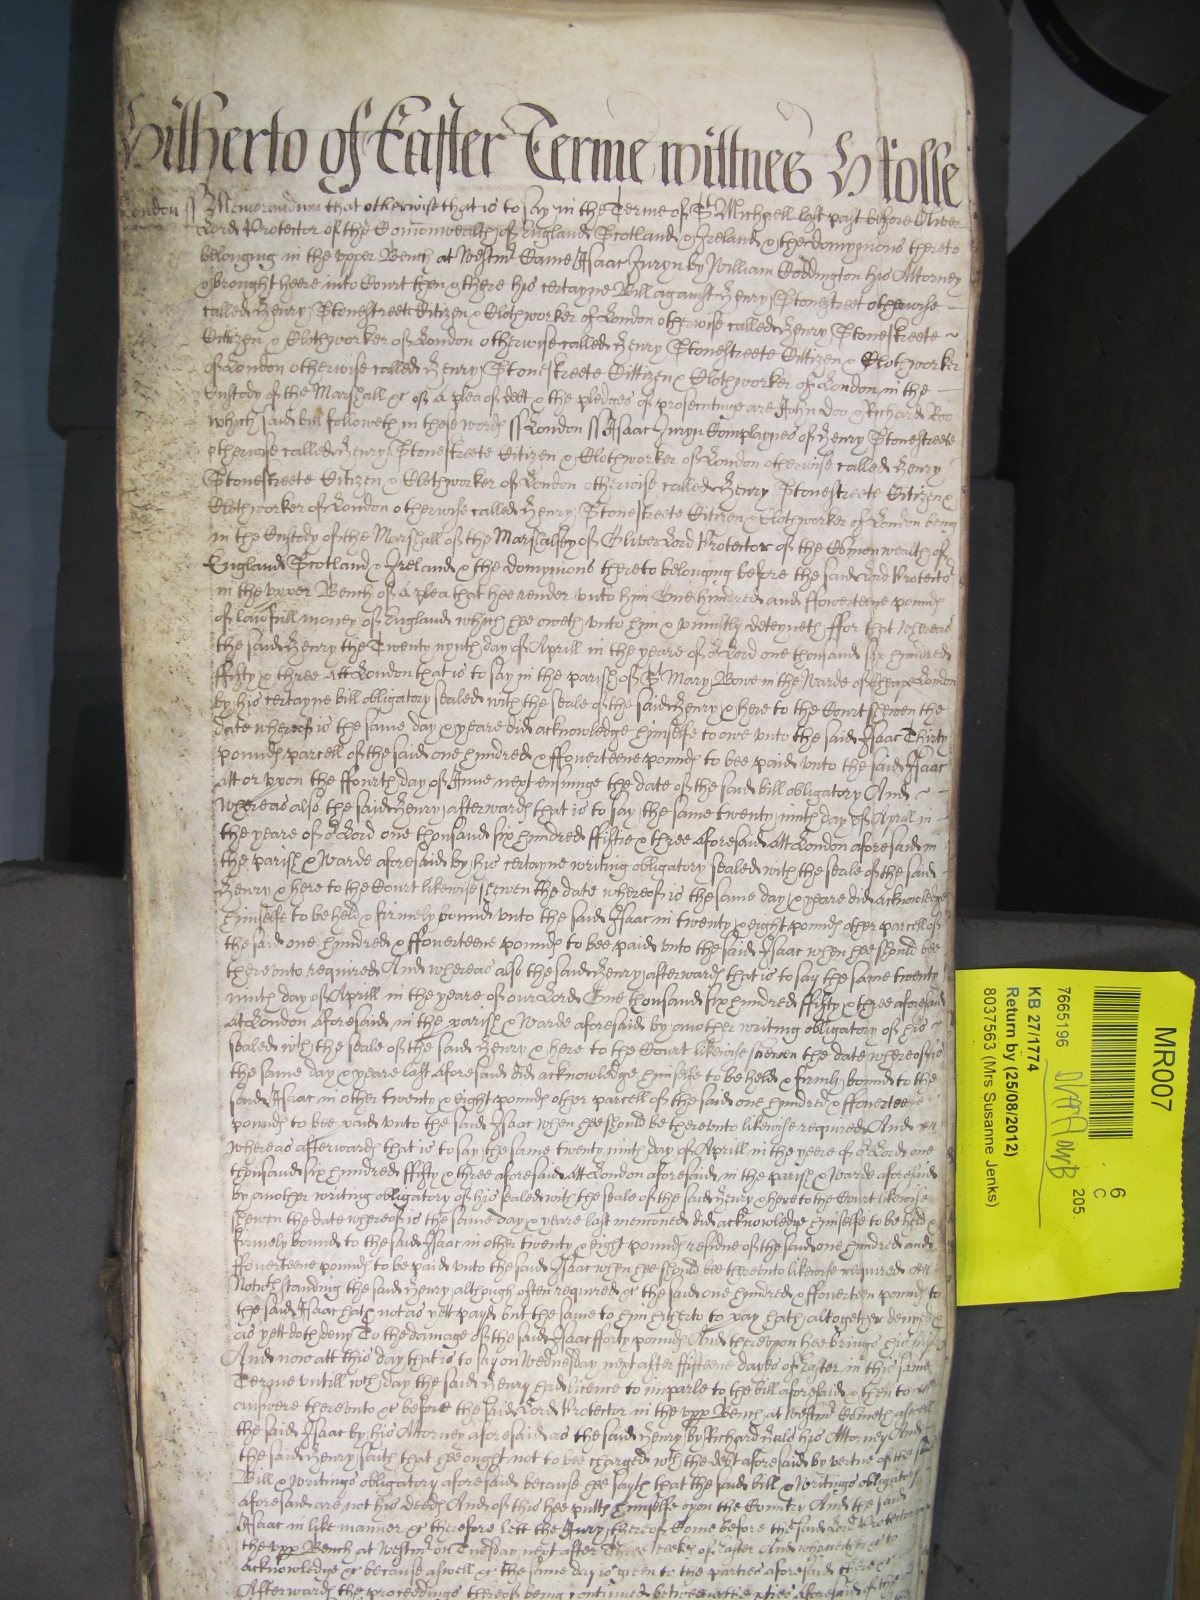 Hitherto of Easter Terme wittnes H Rolle
London ss Memorandum that otherwise that is to say in the Terme of St Michaell last past before Oliver
Lord Protector of the Comonwealth of England Scotland & Ireland & the domynions thereto
belonging in the upper Bench at Westmr Came Isaac Juryn by William Coddington his Attorney
& brought heere into Court then & there his certayne Bill against Henry Stonestreet otherwise
called Henry Stonestreete Citizen & Clothworker of London otherwise called Henry Stonestreete
Cittizen & Clothworker of London otherwise called Henry Stonestreete Cittizen & Clothworker
of London otherwise called Henry Stonestreete Cittizen & Clothworker of London in the
Custody of the Marshall &c of a plea of debt & the pledges of prosecutinge are John Doo & Richard Roo
which said bill followeth in these words ss London ss Isaac Juryn Complaynes of Henry Stonestreete
otherwise called Henry Stonestreete Citizen & Clothworker of London otherwise called Henry
Stonestreete Citizen & Clothworker of London otherwise called Henry Stonestreete Citizen &
Clothworker of London otherwise called Henry Stonestreete Citizen & Clothworker of London being
in the Custody of the Marshall of the Marshalsey of Oliver Lord Protector of the Comonwealth of
England Scotland & Ireland & the domynions thereto belonging before the said Lord Protector
in the upper Bench of a plea that hee render unto him One hundred and ffowerteene pounds
of lawfull money of England which hee oweth unto him & uniustly deteyneth ffor that whereas
the said Henry the Twenty nynth day of Aprill in the yeare of or Lord one thousand six hundred
ffifty & three att London that is to say in the parish of St Mary Bowe in the Warde of Cheape London
by his certayne bill obligatory sealed with the seale of the said Henry & here to the Court shewen the
date whereof is the same day & yeare did acknowledge himselfe to owe unto the said Isaac Thirty
pounds parcell of the said one hundred & ffowerteene pounds to bee paid unto the said Isaac
att or upon the ffourth day of June next ensuinge the date of the said bill obligatory And
Whereas also the said Henry afterwards that is to say the same twenty ninth day of Aprill in
the yeare of or Lord one thousand six hundred ffiftie & three aforesaid att London aforesaid in
the parish & Warde aforesaid by his certayne writing obligatory sealed with the seale of the said
Henry & here to the Court likewise shewen the date whereof is the same day & yeare did acknowledge
himselfe to be held & firmely bound unto the said Isaac in twenty & eight pounds other parcell of
the said one hundred & ffowerteene pounds to bee paid unto the said Isaac when hee should bee
thereunto required And whereas also the said Henry afterwards that is to say the same twenty
ninth day of Aprill in the yeare of our Lord One thousand six hundred ffifty & three aforesaid
at London aforesaid in the parish & Warde aforesaid by another writing obligatory of his
sealed with the seale of the said Henry & here to the Court likewise shewen the date whereof is
the same day & yeare last aforesaid did acknowledge himselfe to be held & firmly bound to the
said Isaac in other twenty & eight pounds other parcell of the said one hundred & ffowerteene
pounds to bee paid unto the said Isaac when hee should be thereunto likewise required And
whereas afterwards that is to say the same twenty ninth day of Aprill in the yeere of or Lord one
thousand six hundred ffifty & three aforesaid att London aforesaid in the parish & Warde aforesaid
by another writing obligatory of his sealed with the seale of the said Henry & here to the Court likewise
shewen the date whereof is the same day & yeare last mencioned did acknowledge himselfe to be held &
firmely bound to the said Isaac in other twenty & eight pounds residue of the said one hundred and
ffowerteene pounds to be paid unto the said Isaac when hee should bee thereunto likewise required
Notwthstanding the said Henry although often required &c the said one hundred & ffowerteen pounds to
the said Isaac hath not as yett payd but the same to him hitherto to pay hath altogether denyed &
as yett doth deny To the damage of the said Isaac fforty pounds And thereupon hee brings his suit
And now att this day that is to say on Wednesday next after ffifteene dayes of Easter in this same
Terme untill wch day the said Henry had licence to imparle to the bill aforesaid & then to
answere thereunto &c before the said Lord Protector in the upp Bench at Westmr Cometh aswell
the said Isaac by his Attorney aforesaid as the said Henry by Richard Hals his Attorney And
the said Henry saith that hee ought not to bee charged wth the debt aforesaid by vertue of the said
Bill & Writings obligatory aforesaid because hee sayth that the said bill & Writings obligatory
aforesaid are not his deeds And of this hee putts himselfe upon the Country And the said
Isaac in like manner &c therefore lett the Jury thereof Come before the said Lord Protector
the upp Bench at Westmr on Tuesday next after Three weekes of Easter And who neither &c to
acknowledge &c because aswell &c the same day is given to the parties aforesaid there &c
Afterwards the proceedings thereof being continued betweene the pties aforesaid of the
MR007
6
C
205.
7665196
KB 27/1774
Return by (25/08/2012)
8037563 (Mrs Susanne Jenks)